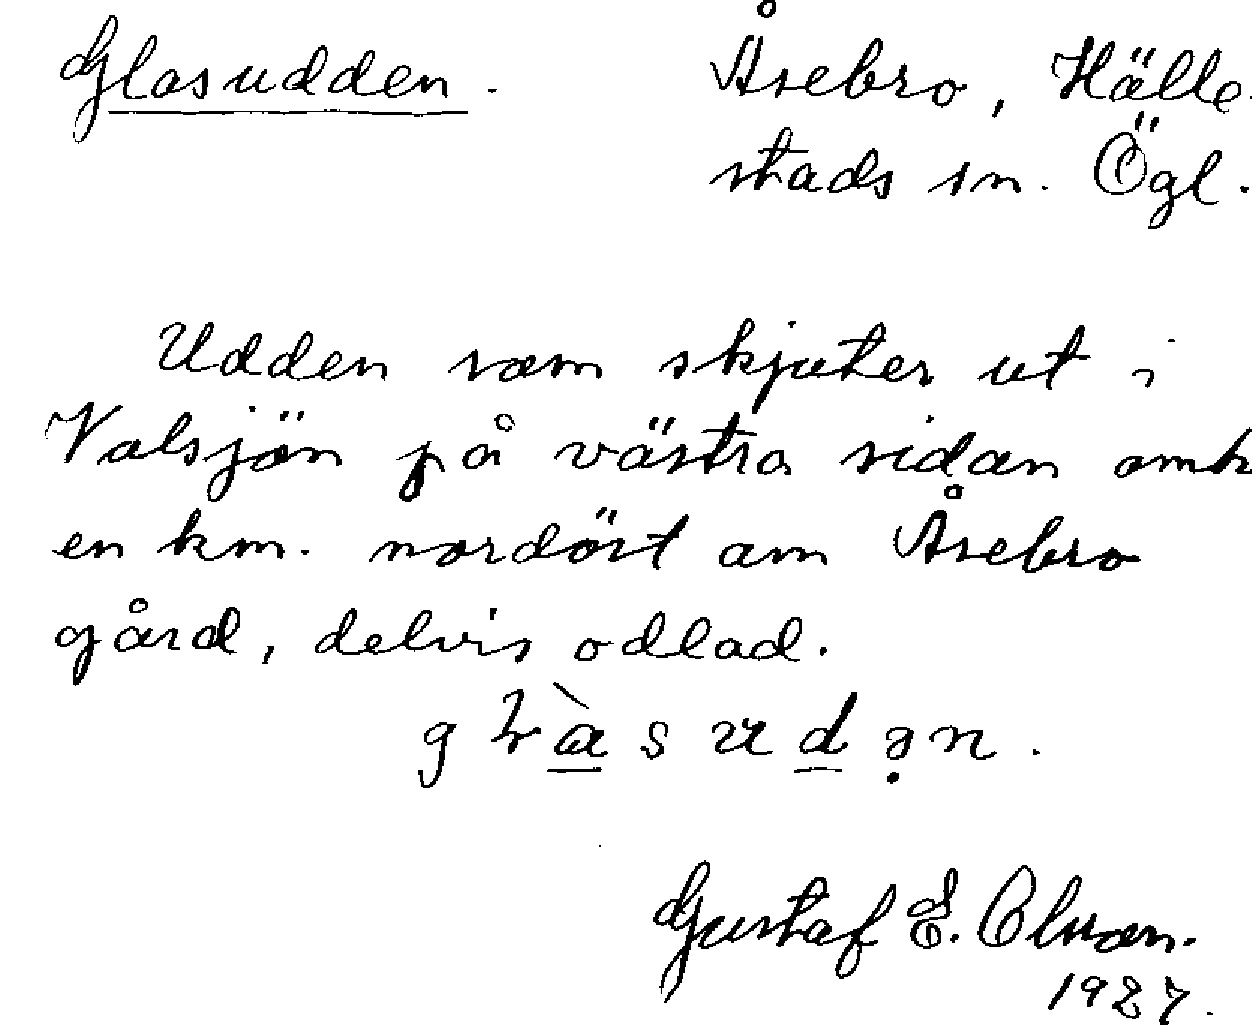 Glasudden. Åsebro, Hälle-
stads sn. Ögl.
Udden som skjuter ut i
Valsjön på västra sidan omk
en km. nordöst om Åsebro
gård, delvis odlad.
Gustaf E. Olsson.
1927.